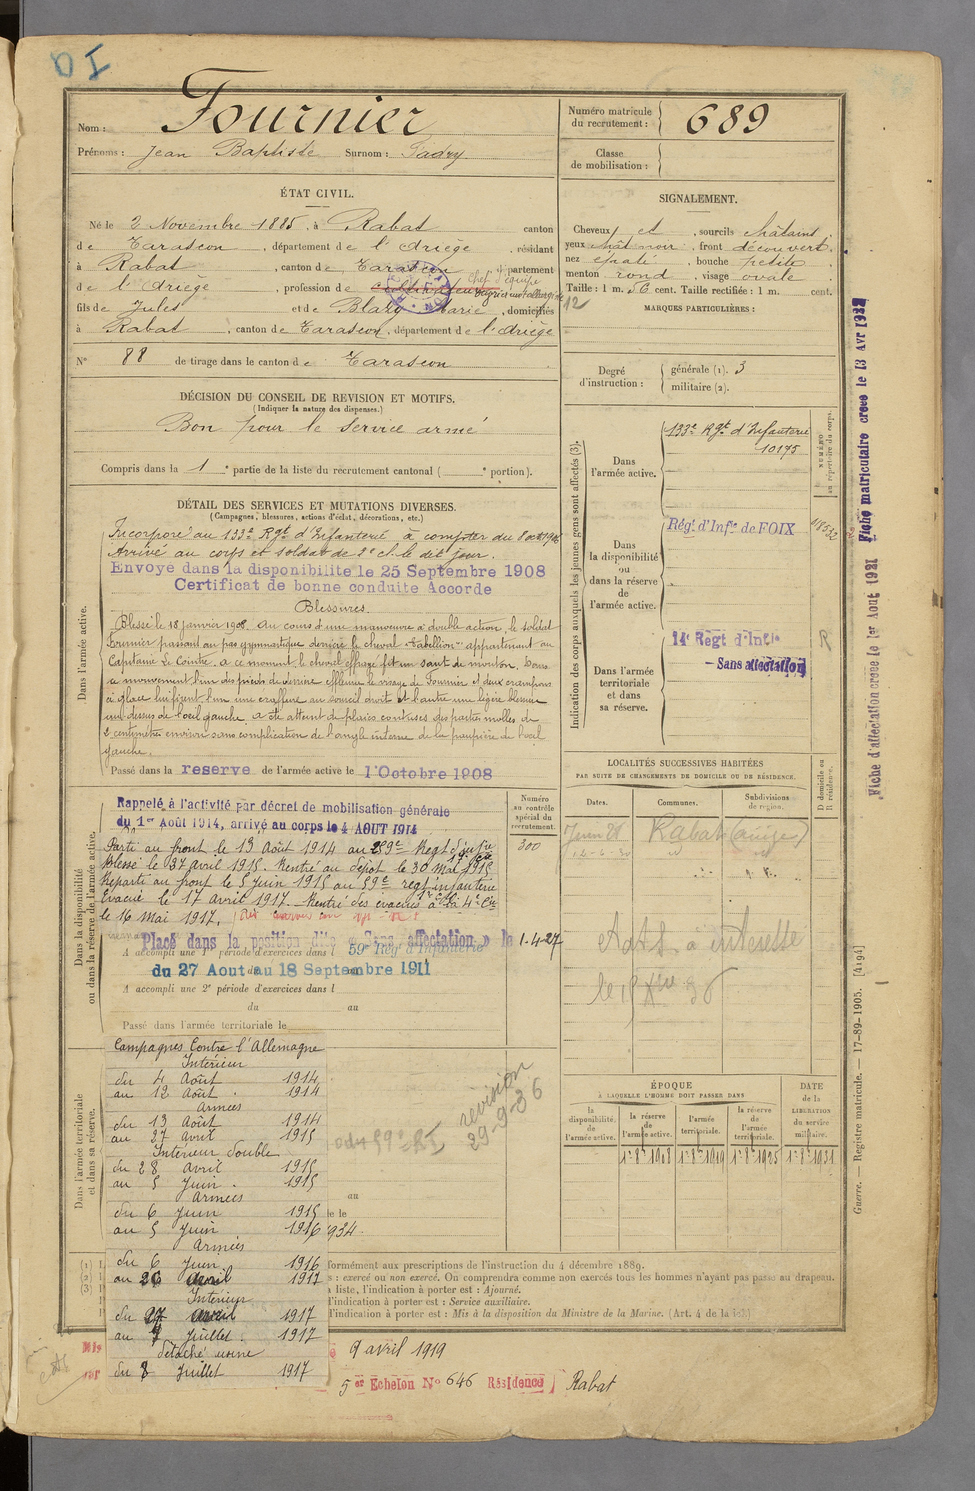 OI
Nom : Fournier
Prénoms : Jean Baptiste Surnom :
Numéro matricule du recrutement : 689
Classe de mobilisation :
ÉTAT CIVIL.
Né le 2 Novembre 1885, à Rabat canton
de Tarascon, département de l'Ariège, résidant
à Rabat, canton de Tarascon, département
de l'Ariège, profession de cultivateur Chef d'équipe
fils de Jules et de Blazy Marie, domiciliés
à Rabat, canton de Tarascon, département de l'Ariège
N° 88 de tirage dans le canton de Tarascon
DÉCISION DU CONSEIL DE REVISION ET MOTIFS.
(Indiquer la nature des dispenses.)
Bon pour le service armé
Compris dans la 1e partie de la liste du recrutement cantonal ( e portion).
SIGNALEMENT.
Cheveux et, sourcils châtains
yeux, front découvert
nez épaté, bouche petite
menton rond, visage ovale
Taille : 1 m. 56 cent. Taille rectifiée : 1 m. cent.
MARQUES PARTICULIÈRES :
12
Degré d'instruction : générale (1). 3
militaire (2).
DÉTAIL DES SERVICES ET MUTATIONS DIVERSES.
(Campagnes, blessures, actions d'éclat, décorations, etc.)
Dans l'armée active.
Incorporé au 133e Rgt d'Infanterie à compter du 8 oct 1906
Arrivé au corps et soldat de 2e cl. le dit jour.
Envoyé dans la disponibilité le 25 Septembre 1908
Certificat de bonne conduite Accordé
Blessures.
Blessé le 18 janvier 1908. Au cours d'une manœuvre à double action, le soldat
Fournier passant au pas gymnastique derrière le cheval "Tabellion" appartenant au
Capitaine Le Cointre, a ce moment le cheval effrayé fit un saut de mouton. Dans
ce mouvement l'un des pieds de derrière effleura le visage de Fournier et deux crampons
à glace lui firent l'une une éraflure au sourcil droit et l'autre une légère blessure
au dessus de l'oeil gauche. a été atteint de plaies contuses des parties molles de
2 centimètres environ sans complication de l'angle interne de la paupière de l'oeil
gauche.
Passé dans la reserve de l'armée active le 1 Octobre 1908
Dans la disponibilité ou dans la réserve de l'armée active.
Rappelé à l'activité par décret de mobilisation générale
du 1er Août 1914, arrivé au corps le 4 AOUT 1914
Parti au front le 13 Août 1914 au 259e Regt d'Infie
Blessé le 27 avril 1915. Rentré au dépôt le 30 Mai 1915
Reparti au front le 5 Juin 1915 au 59e regt infanterie
Evacué le 17 avril 1917. Rentré des évacués à la 4e Cie
le 16 Mai 1917.
Placé dans la position dite « Sans affectation » le 1-4-27
A accompli une 1e période d'exercices dans l 59e Rég d'Infanterie
du 27 Aout au 18 Septembre 1911
A accompli une 2e période d'exercices dans l
du au
Passé dans l'armée territoriale le
Numéro au contrôle spécial du recrutement.
300
Dans l'armée territoriale et dans sa réserve.
Campagnes Contre l'Allemagne
Intérieur
du 4 Août 1914
au 12 Août 1914
Armées
du 13 Août 1914
au 27 Avril 1915
Intérieur double
du 28 avril 1915
au 5 Juin 1915
Armées
du 6 Juin 1915
au 5 Juin 1916
Armées
du 6 Juin 1916
au 26 avril 1917
Intérieur
du 27 avril 1917
au 7 Juillet 1917
détaché usine
du 8 Juillet 1917
revision
29-9-36
au
934
Indication des corps auxquels les jeunes gens sont affectés (3).
NUMÉRO au répertoire du corps.
Dans l'armée active.
133e Rgt d'Infanterie
10175
Dans la disponibilité ou dans la réserve de l'armée active.
Régt d'Infie de FOIX
Dans l'armée territoriale et dans sa réserve.
14e Regt d'Infie
R
— Sans affectation
LOCALITÉS SUCCESSIVES HABITÉES
PAR SUITE DE CHANGEMENTS DE DOMICILE OU DE RÉSIDENCE.
Dates.
Communes.
Subdivisions de région.
D domicile ou R résidence.
Rabat (Ariège)
ÉPOQUE
À LAQUELLE L'HOMME DOIT PASSER DANS
la disponibilité de l'armée active.
la réserve de l'armée active.
l'armée territoriale.
la réserve de l'armée territoriale.
DATE de la LIBÉRATION du service militaire.
1er 8bre 1908
1er 8bre 1919
1er 8bre 1925
1er 8bre 1931
(1)
(2)
(3)
formément aux prescriptions de l'instruction du 4 décembre 1889.
s : exercé ou non exercé. On comprendra comme non exercés tous les hommes n'ayant pas passé au drapeau.
liste, l'indication à porter est : Ajourné.
l'indication à porter est : Service auxiliaire.
l'indication à porter est : Mis à la disposition du Ministre de la Marine. (Art. 4 de la loi)
9 avril 1919
5 er Echelon N° 646 Résidence) Rabat
Fiche matriculaire créée le 13 Avr 1932
Fiche d'affectation créée le 1er Aout 1921
Guerre. — Registre matricule. — 17-89-1905. [4194]